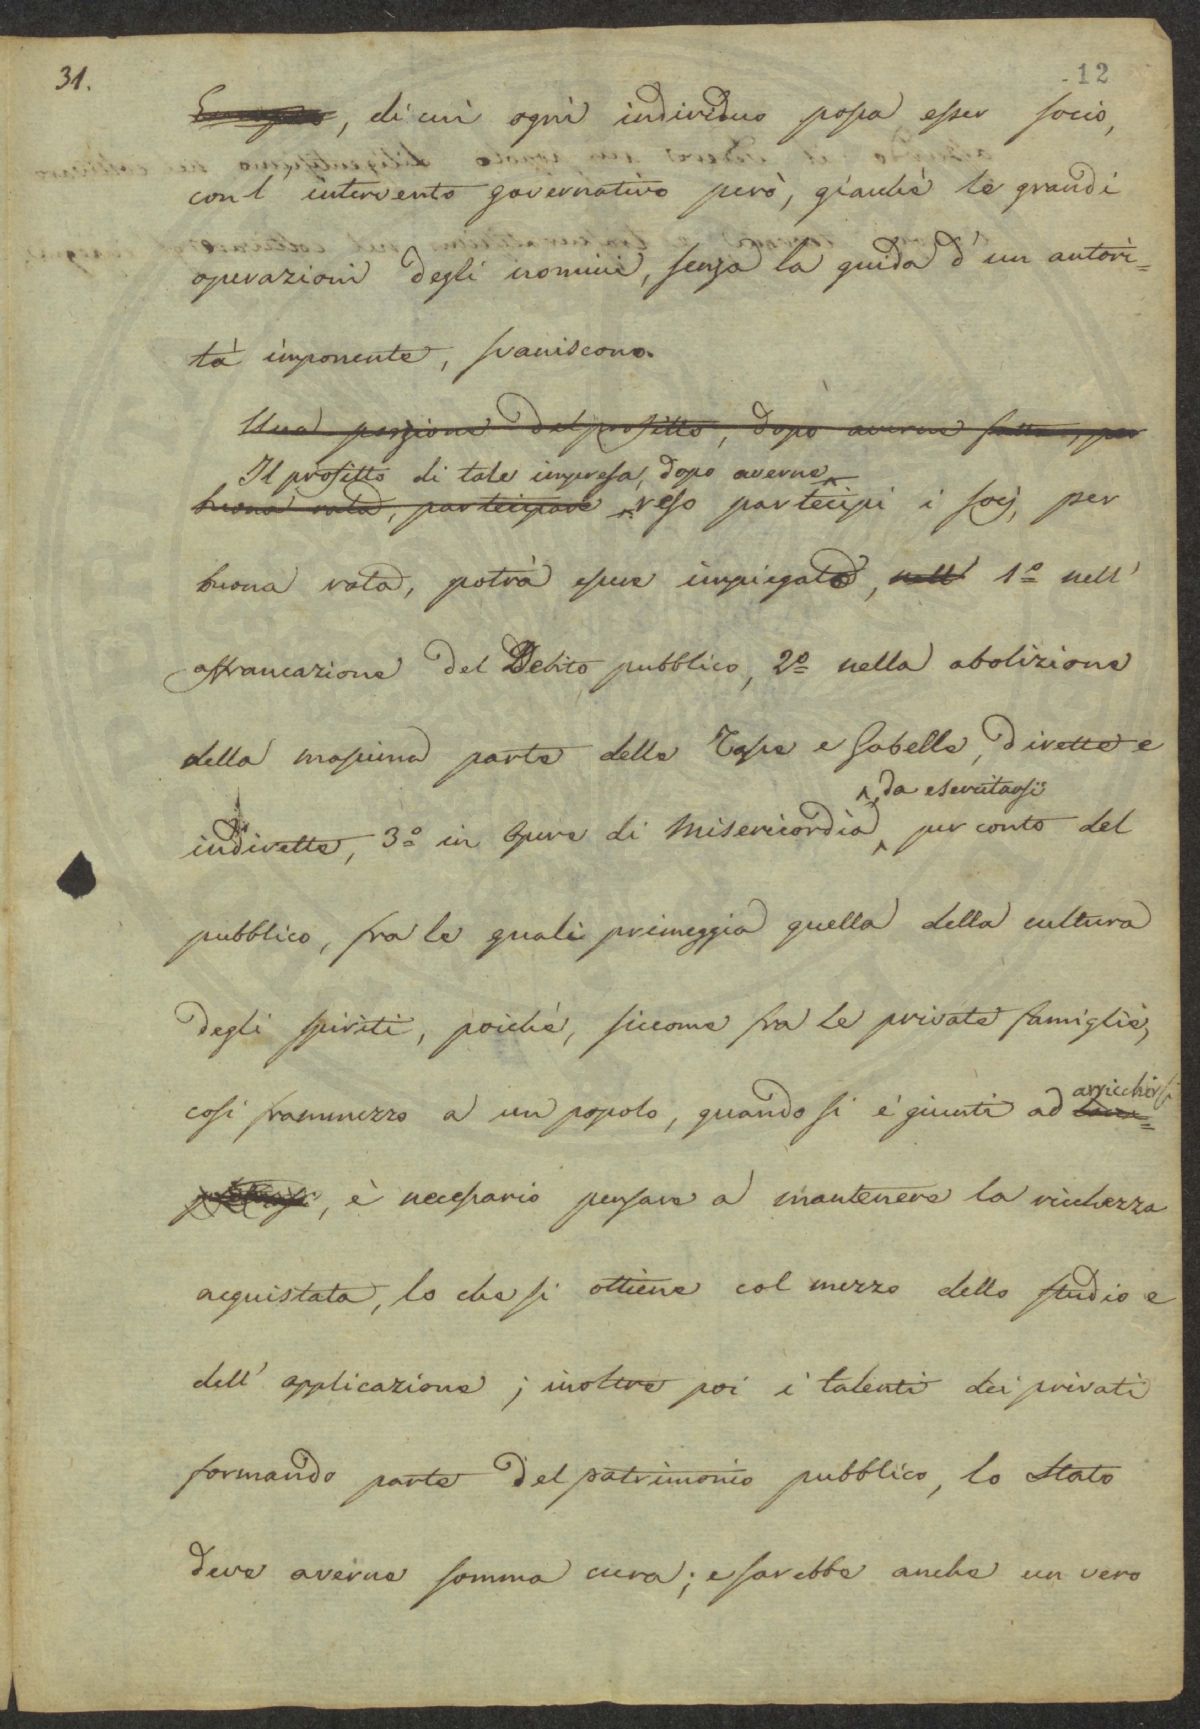 31.
12
, di cui ogni individuo possa esser socio,
con l intervento governativo però, giacchè le grandi
operazioni degli uomini, senza la guida d'un autori=
tà imponente, svaniscono.
Una porzione del profitto, dopo averne fatta, per
Il profitto di tale impresa, dopo averne
buona rata, partecipare reso partecipi i socj, per
buona rata, potrà essere impiegato, nell' 1º nell'
affrancazione del Debito pubblico, 2º nella abolizione
della massima parte delle Tasse e Gabelle, dirette e
, da esercitarsi
indirette, 3º in Opere di Misericordia per conto del
pubblico, fra le quali primeggia quella della cultura
degli spiriti, poichè, siccome fra le private famiglie,
così frammezzo a un popolo, quando si è giunti ad
arricchirsi
, è necessario pensare a mantenere la ricchezza
acquistata, lo che si ottiene col mezzo dello studio e
dell' applicazione; inoltre poi i talenti dei privati
formando parte del patrimonio pubblico, lo Stato
deve averne somma cura; e sarebbe anche un vero